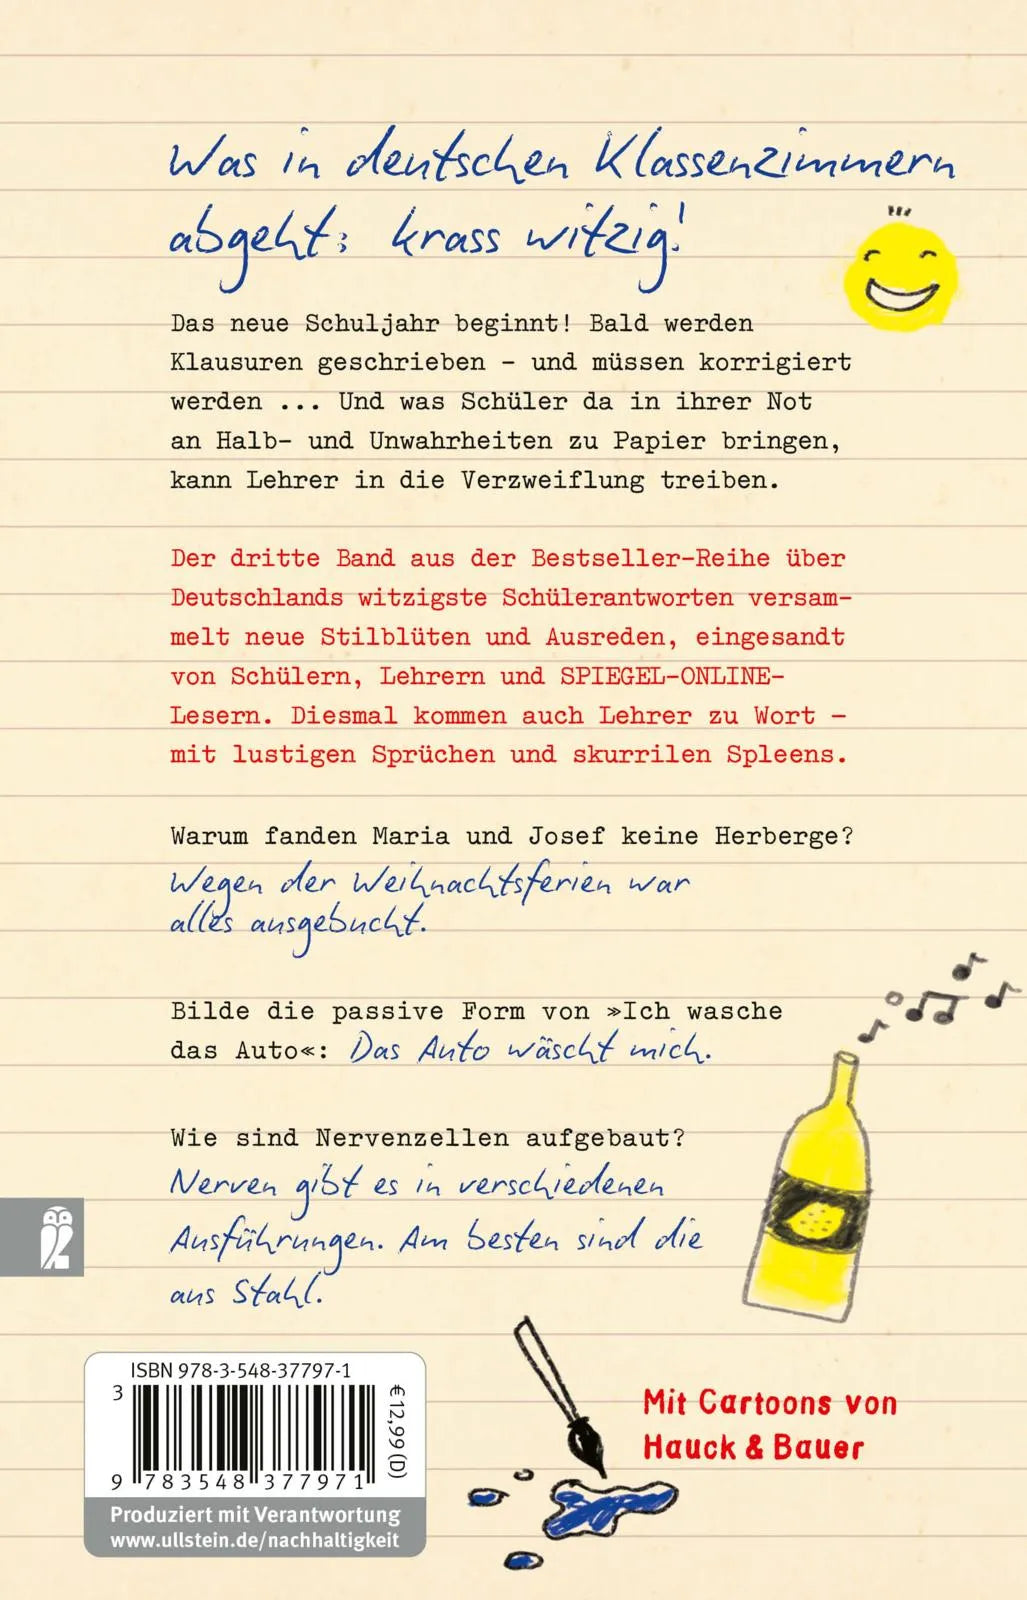 Was in deutschen Klassenzimmern
abgeht: krass witzig!
Das neue Schuljahr beginnt! Bald werden
Klausuren geschrieben – und müssen korrigiert
werden ... Und was Schüler da in ihrer Not
an Halb- und Unwahrheiten zu Papier bringen,
kann Lehrer in die Verzweiflung treiben.
Der dritte Band aus der Bestseller-Reihe über
Deutschlands witzigste Schülerantworten versam-
melt neue Stilblüten und Ausreden, eingesandt
von Schülern, Lehrern und SPIEGEL-ONLINE-
Lesern. Diesmal kommen auch Lehrer zu Wort –
mit lustigen Sprüchen und skurrilen Spleens.
Warum fanden Maria und Josef keine Herberge?
Wegen der Weihnachtsferien war
alles ausgebucht.
Bilde die passive Form von »Ich wasche
das Auto«: Das Auto wäscht mich.
Wie sind Nervenzellen aufgebaut?
Nerven gibt es in verschiedenen
Ausführungen. Am besten sind die
aus Stahl.
ISBN 978-3-548-37797-1
€ 12,99 (D)
9 783548 377971
3
Produziert mit Verantwortung
www.ullstein.de/nachhaltigkeit
Mit Cartoons von
Hauck & Bauer